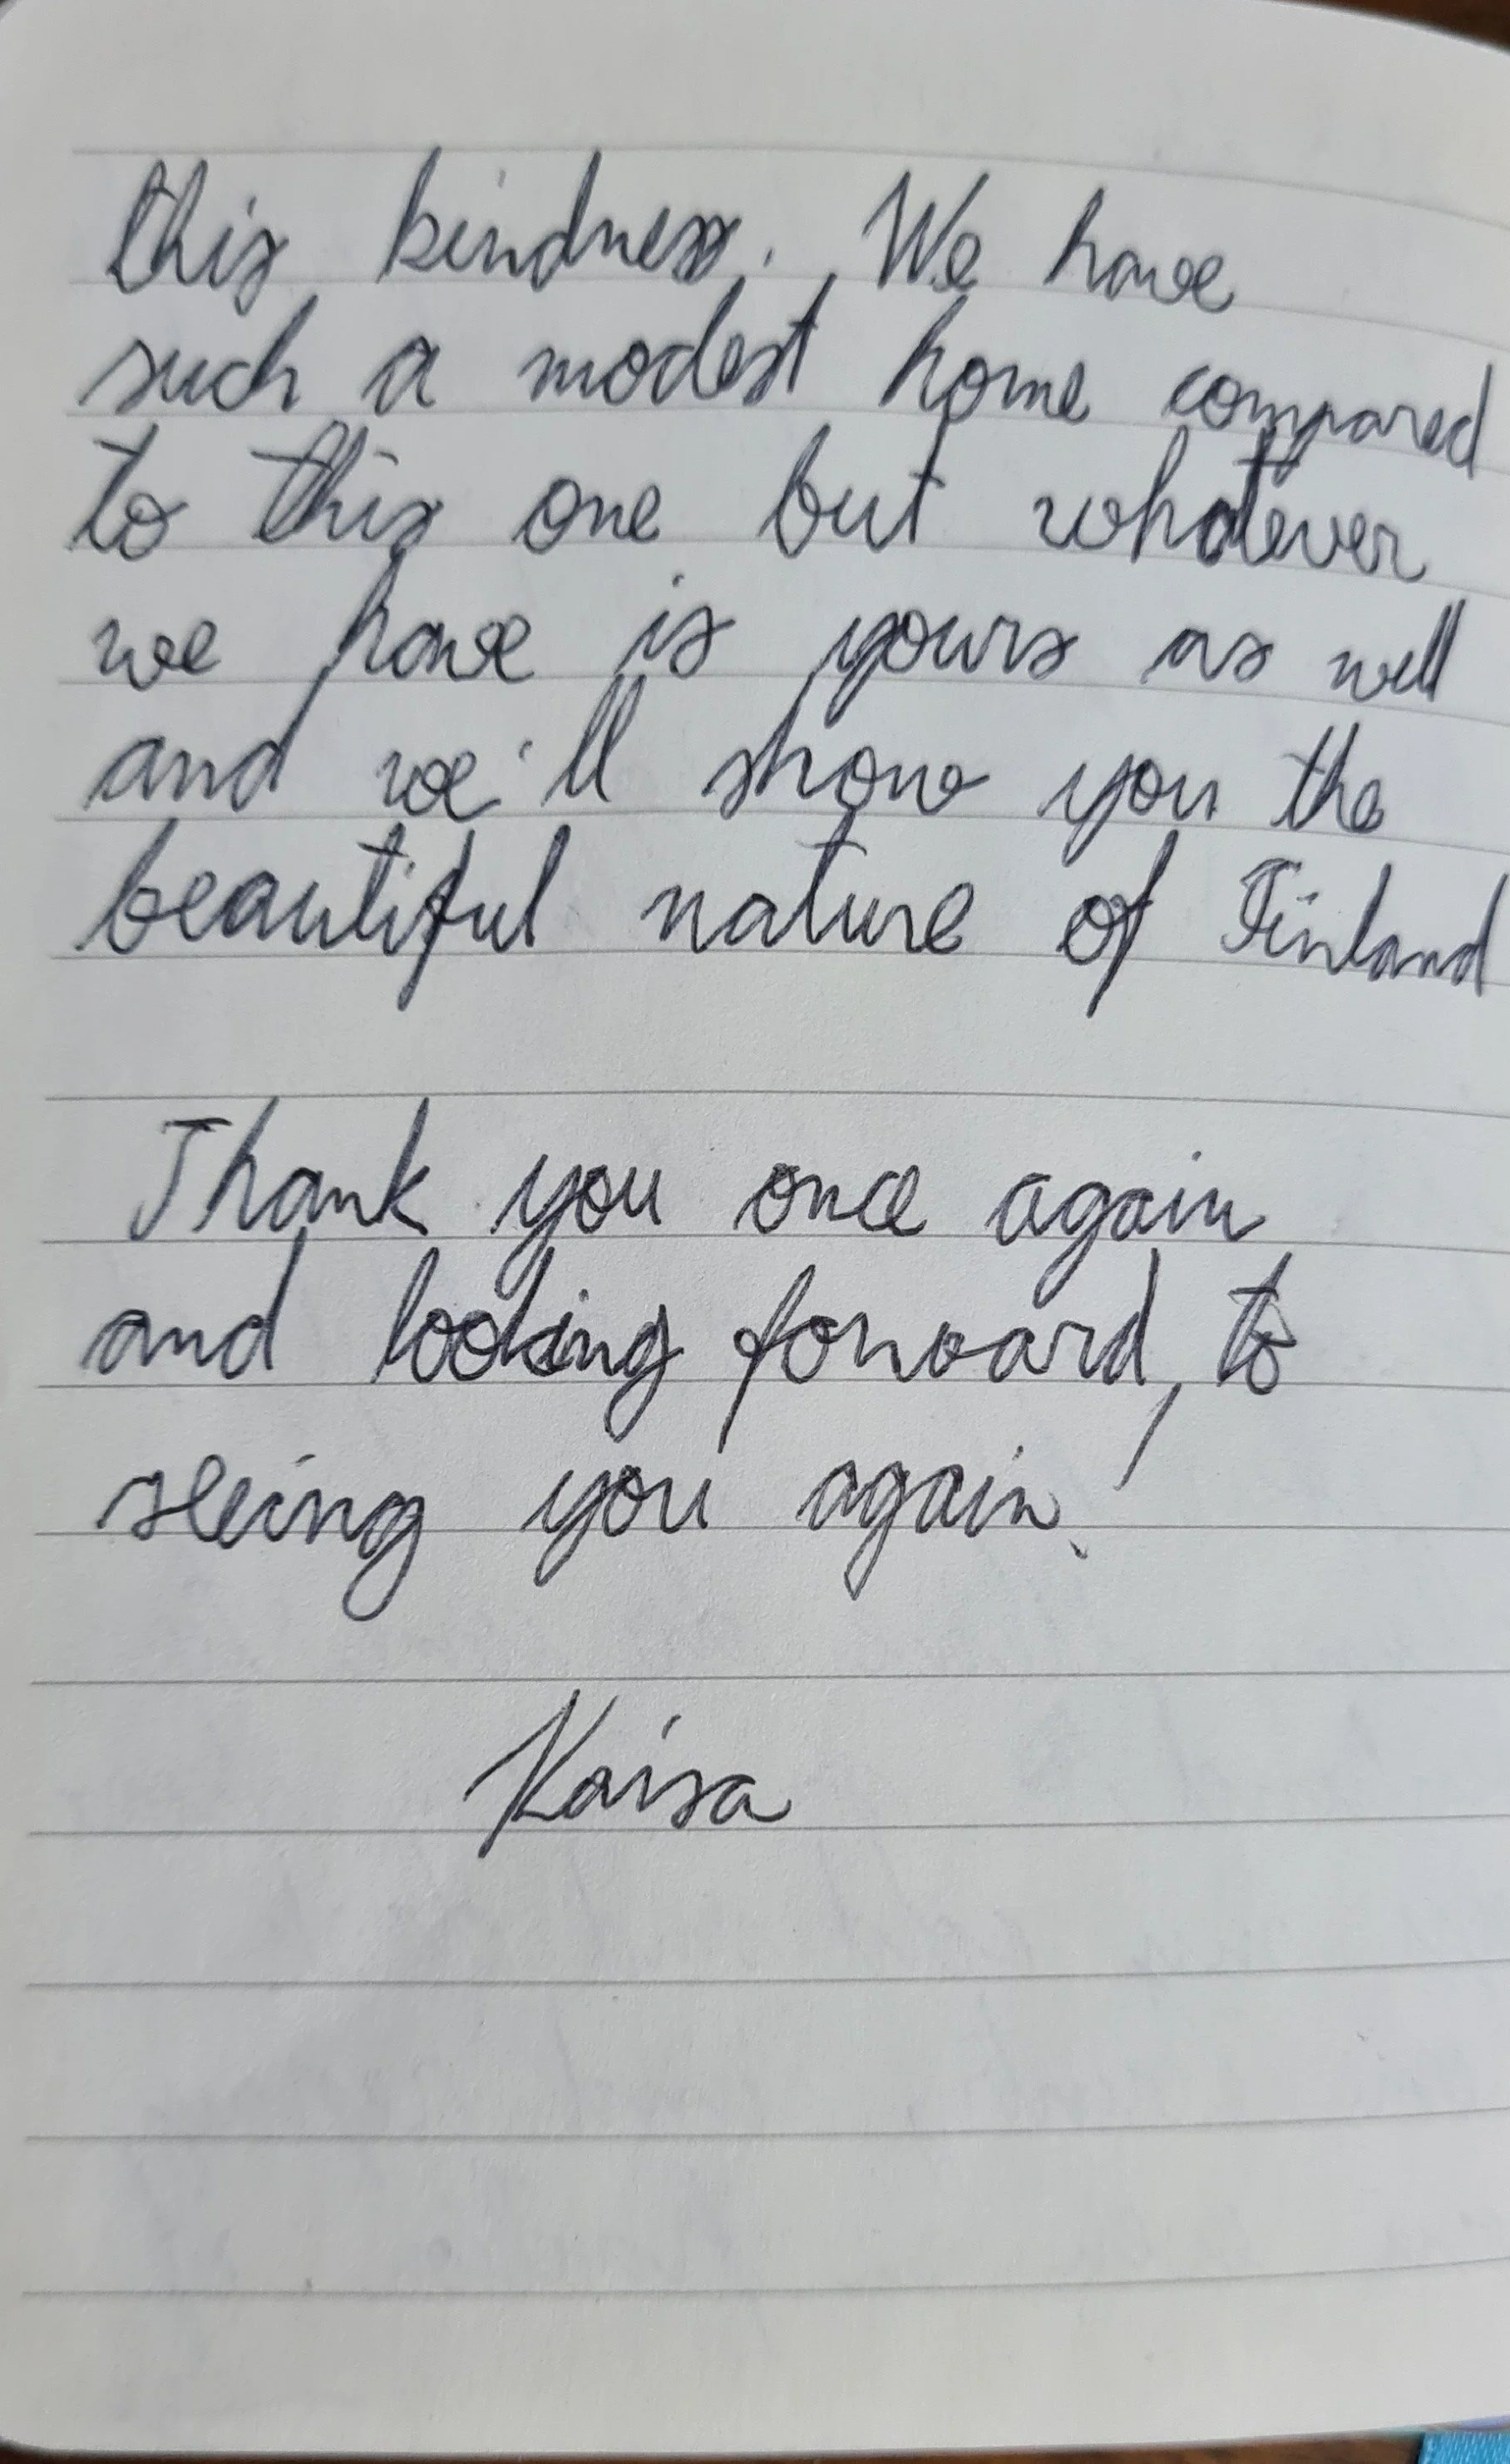 this kindness. We have
such a modest home compared
to this one but whatever
we have is yours as well
and we'll show you the
beautiful nature of Finland
Thank you once again
and looking forward, to
seeing you again!
Kaisa